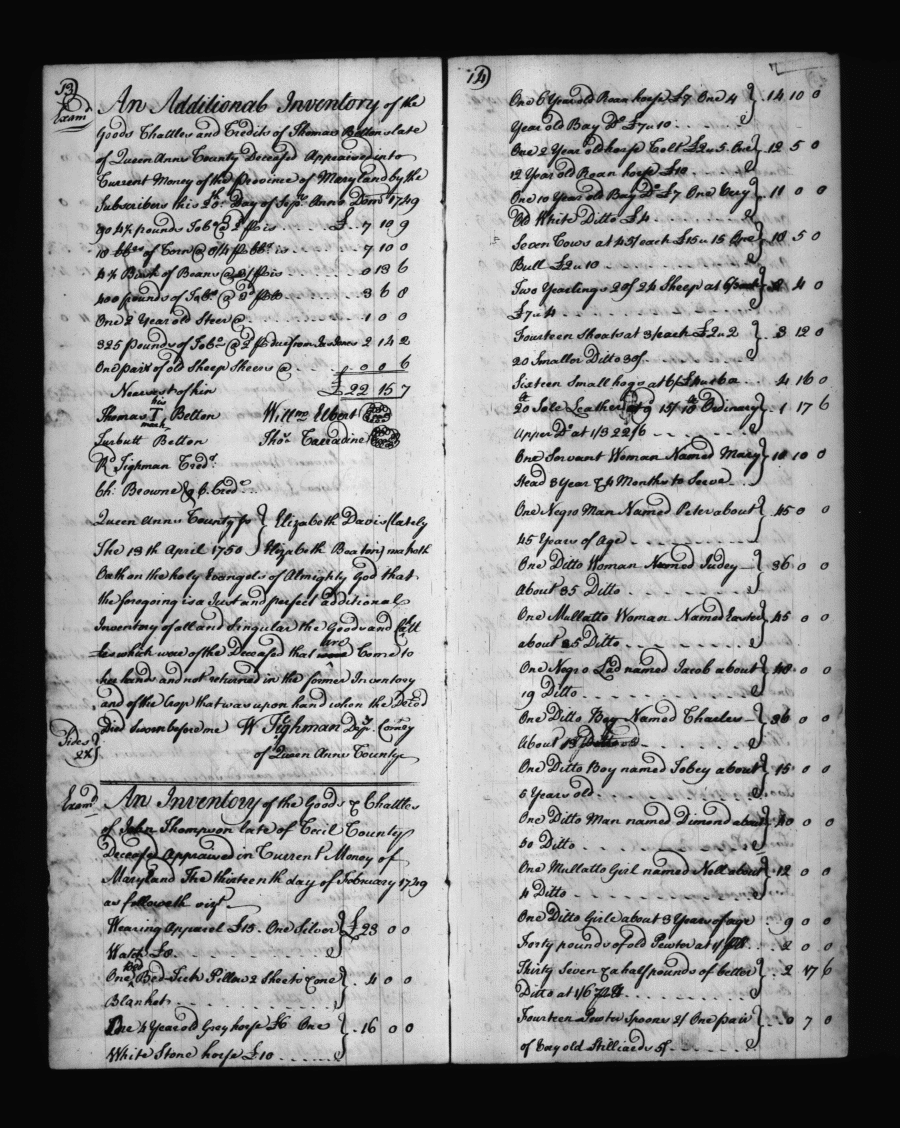 13
Exam.d An Additional Inventory of the
Goods Chattles and Credits of Thomas Belton late
of Queen Anns County Deceas'd Appraised into
Current Money of the Province of Maryland by the
Subscribers this 20.th Day of Sep.r Anno Dom 1749
pounds Tob.o @ 2 £ 7 10 9
10 bb.ls of Corn @ bb.l is 7 10 0
4½ Bush of Beans @ 3/ is 0 13 6
400 pounds of Tob.o @ 2.d 3 6 8
One 2 Year old Steer @ 1 0 0
325 pounds of Tob.o @ 2 due from 2 14 2
One pair of old Sheep Sheers @ 0 0 6
Nearest of kin £22 15 7
his
Thomas T Belton Will.m Elbert
mark
Turbutt Belton Tho.s Carradine
R.d Tighman Cred.r
Ch: Browne & C. Cred.r
Queen Anns County ss } Elizabeth Davis (lately
The 18th April 1750 } Elizabeth Beaton) maketh
Oath on the holy Evangels of Almighty God that
the foregoing is a Just and perfect additional
Inventory of all and Singular the Goods and Chatt
les which were of the Deceased that are Come to
her hands and not returned in the former Inventory
and of the Crop that was upon hand when the Dec'd
Died Sworn before me W Tighman Dep.y Com.ry
of Queen Anns County
Sides
2X
Exam.d An Inventory of the Goods & Chattles
of John Thompson late of Cecil County
Deceased Appraised in Current Money of
Maryland The thirteenth day of February 1749
as followeth viz.t
Wearing Apparel £15. One Silver } £23 0 0
Watch £8
One Bed Bed Tick Pillow 2 Sheets & one } 4 0 0
Blanket
One 4 Year old Grey horse £6 One } 16 0 0
White Stone horse £10
14
One 6 Year old Roan horse £7 One 4 } 14 10 0
Year old Bay D.o £7 " 10
One 2 Year old horse Colt £2 " 5 One } 12 5 0
12 Year old Roan horse £10
One 10 Year old Bay D.o £7 One Very } 11 0 0
Old White Ditto £4
Seven Cows at 45/ each £15 " 15 One } 18 5 0
Bull £2 " 10
Two Yearlings 20/ 24 Sheep at 6/ each } 8 4 0
£7 " 4
Fourteen Shoats at 3/ each £2 " 2 } 3 12 0
20 Smaller Ditto 30/
Sixteen Small hogs at 6/ 4 16 0
20 Sole Leather at 9 15/ 10 Ordinary } 1 17 6
Upper D.o at 1/3 22/6
One Servant Woman Named Mary } 10 10 0
Head 3 Year & 4 Months to Serve
One Negro Man Named Peter about } 45 0 0
45 Years of Age
One Ditto Woman Named Judey } 36 0 0
About 35 Ditto
One Mullatto Woman Named } 45 0 0
about 25 Ditto
One Negro Lad named Jacob about } 48 0 0
19 Ditto
One Ditto Boy Named Charles } 36 0 0
About 13 Ditto
One Ditto Boy named Tobey about } 15 0 0
5 Years old
One Ditto Man named Dimond about } 40 0 0
50 Ditto
One Mullatto Girl named Nell about } 12 0 0
4 Ditto
One Ditto Girle about 3 Years of age 9 0 0
Forty pounds of old Pewter at 1/ 2 0 0
Thirty Seven & a half pounds of better } 2 17 6
Ditto at 1/6
Fourteen Pewter Spoons 2/ One pair } 0 7 0
of old Stilliards 5/